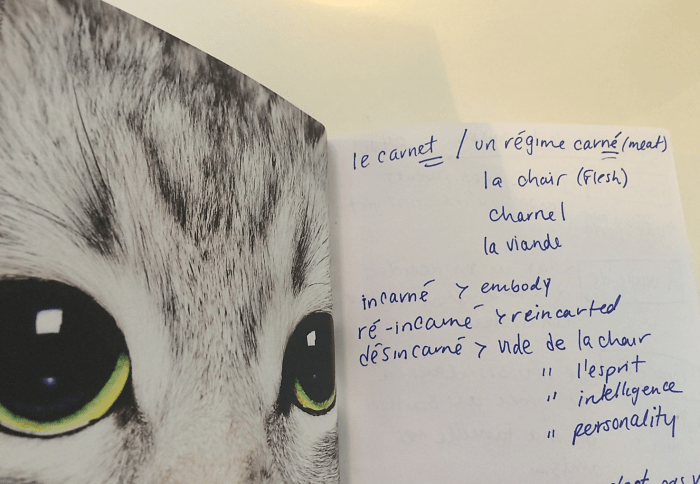 le carnet / un régime carné (meat)
la chair (Flesh)
charnel
la viande
incarné > embody
ré-incarné > reincarted
désincarné > vide de la chair
" l'esprit
" intelligence
" personality
pas